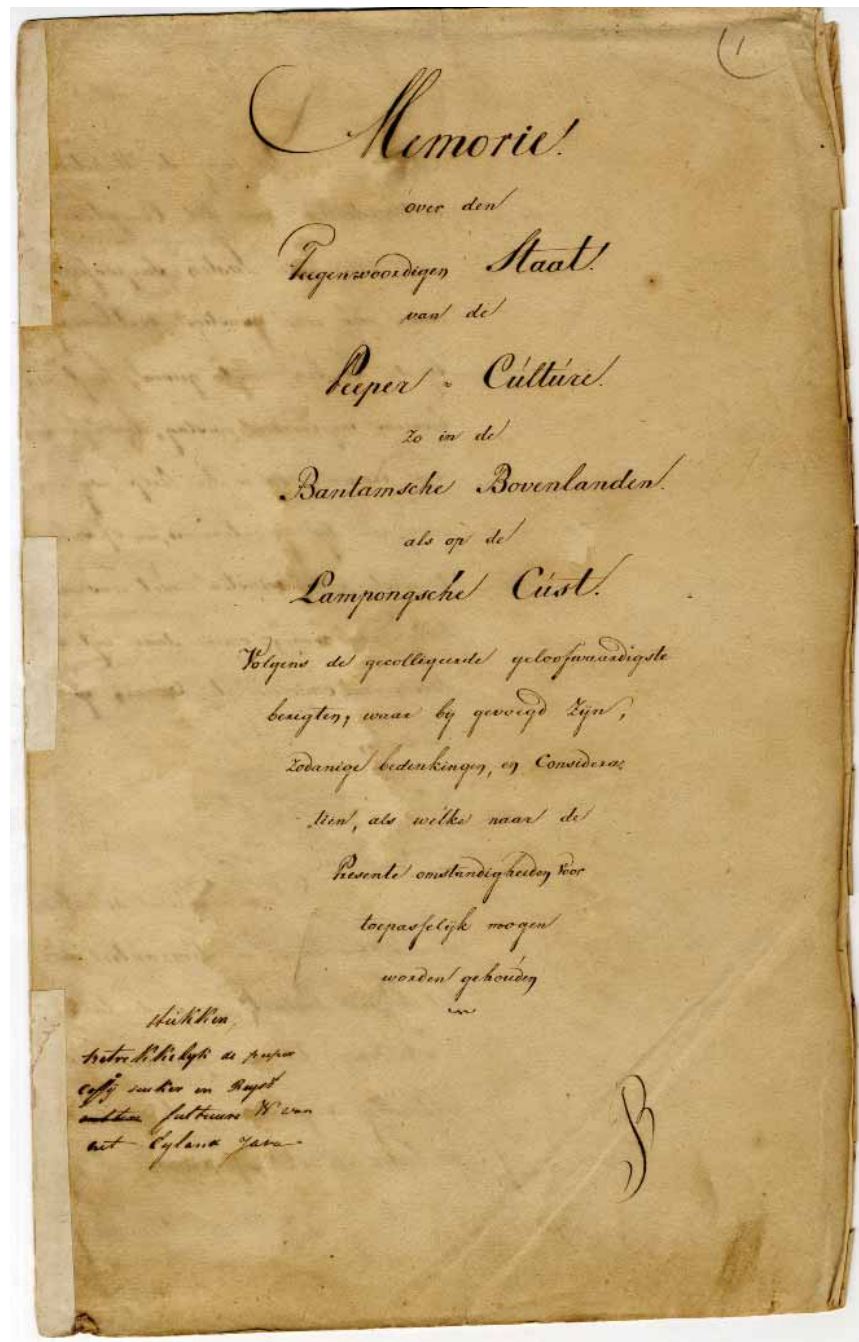 1
Memorie.
over den
Teegenwoordigen Staat.
van de
Peeper-Culture.
zo in de
Bantamsche Bovenlanden.
als op de
Lampongsche Cust.
Volgens de gecolligeerde geloofwaardigste
beregten, waar bij gevoegd zijn,
zodanige bedenkingen, en Considera-
tien, als welke naar de
Presente omstandigheiden voor
toepasselijk mogen
worden gehouden
stukken
betrekkelyk de peper
Coffij suiker en Ryst
cultuure van
het Eyland Java
B